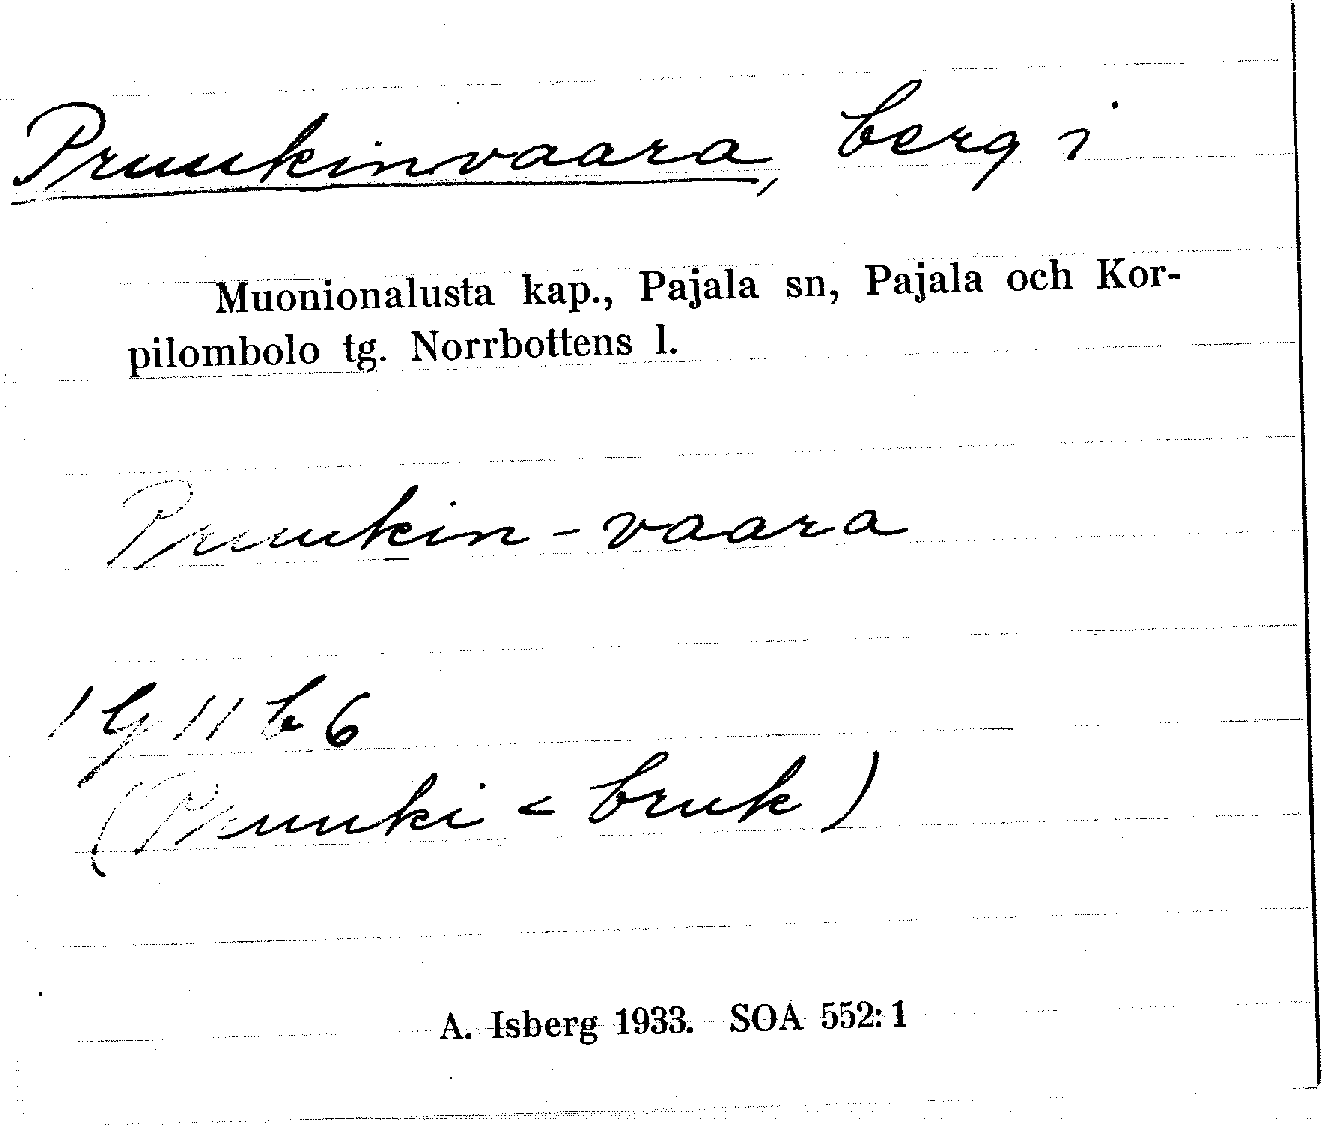 Pruukinvaara, berg i
Muonionalusta kap., Pajala sn, Pajala och Kor-
pilombolo tg. Norrbottens l.
Pruukin-vaara
19 11 b 6
(Pruuki < bruk)
A. Isberg 1933. SOA 552:1